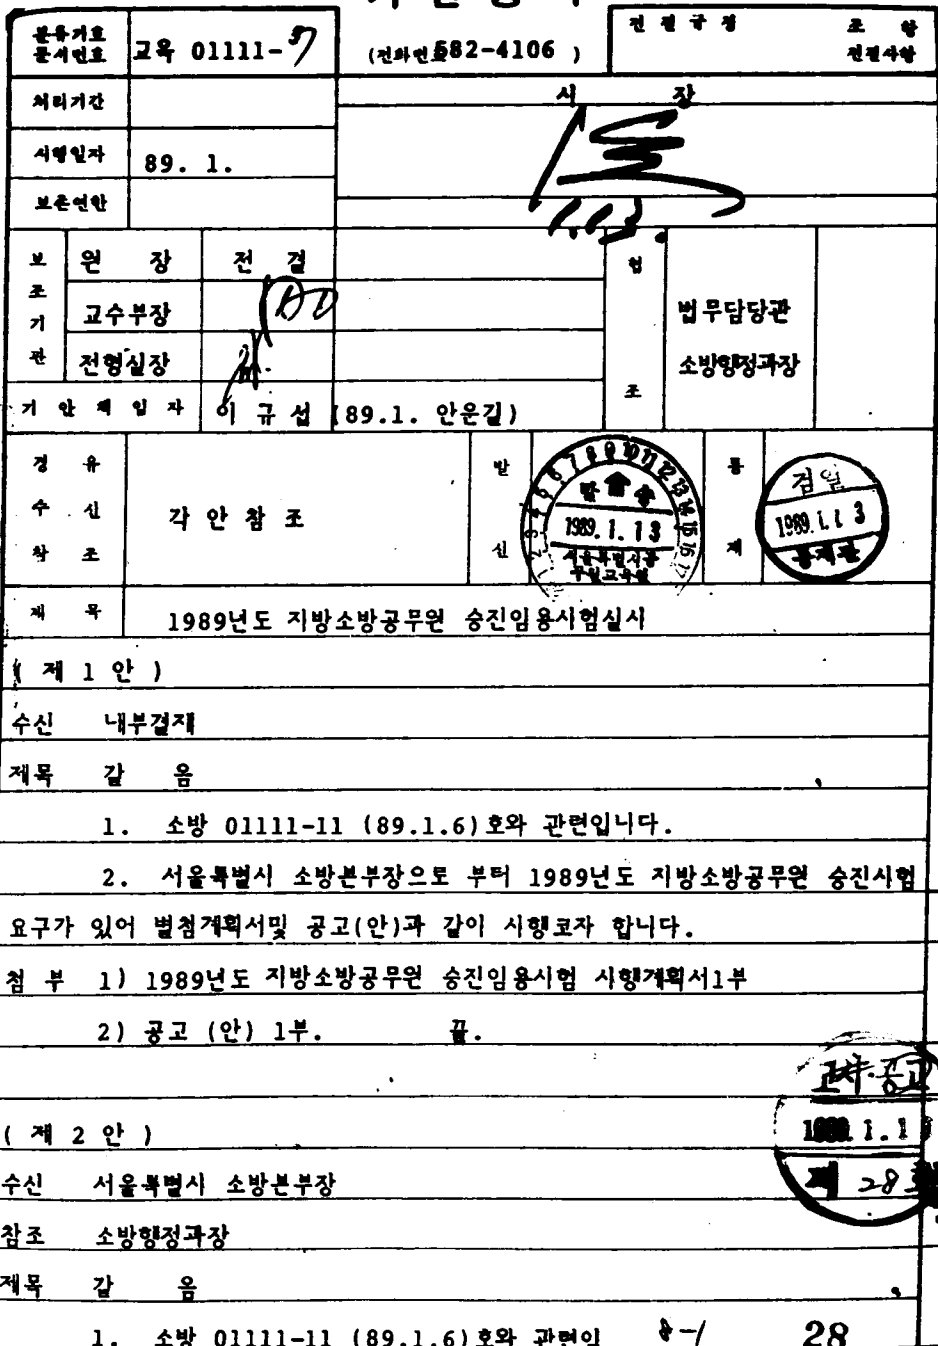 분류기호 문서번호 교육 01111-37 (전화번호 682-4106 ) 전결규정 조 항 전결사항
처리기간 시 장
시행일자 89. 1.
보존연한 1.13.
보조기관 원 장 전 결 협조
교수부장 법무담당관
전형실장 소방행정과장
기 안 책 임 자 이 규 섭 (89.1. 안운길)
경유 수신 참조 각 안 참 조 발신 발송 1989. 1. 13 서울특별시공무원교육원 통제 검열 1989. 1. 13 통제관
제 목 1989년도 지방소방공무원 승진임용시험실시
( 제 1 안 )
수신 내부결재
제목 갈 음
1. 소방 01111-11 (89.1.6)호와 관련입니다.
2. 서울특별시 소방본부장으로 부터 1989년도 지방소방공무원 승진시험
요구가 있어 별첨계획서및 공고(안)과 같이 시행코자 합니다.
첨 부 1) 1989년도 지방소방공무원 승진임용시험 시행계획서1부
2) 공고 (안) 1부. 끝.
공고
1989. 1. 1
제 28
( 제 2 안 )
수신 서울특별시 소방본부장
참조 소방행정과장
제목 갈 음
1. 소방 01111-11 (89.1.6)호와 관련입 8-1 28